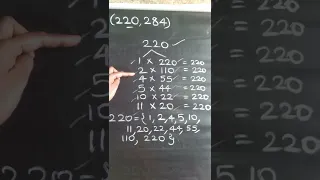 (220, 284)
220
1 × 220 = 220
2 × 110 = 220
4 × 55 = 220
5 × 44 = 220
10 × 22 = 220
11 × 20 = 220
220 = { 1, 2, 4, 5, 10,
11, 20, 22, 44, 55,
110, 220 }